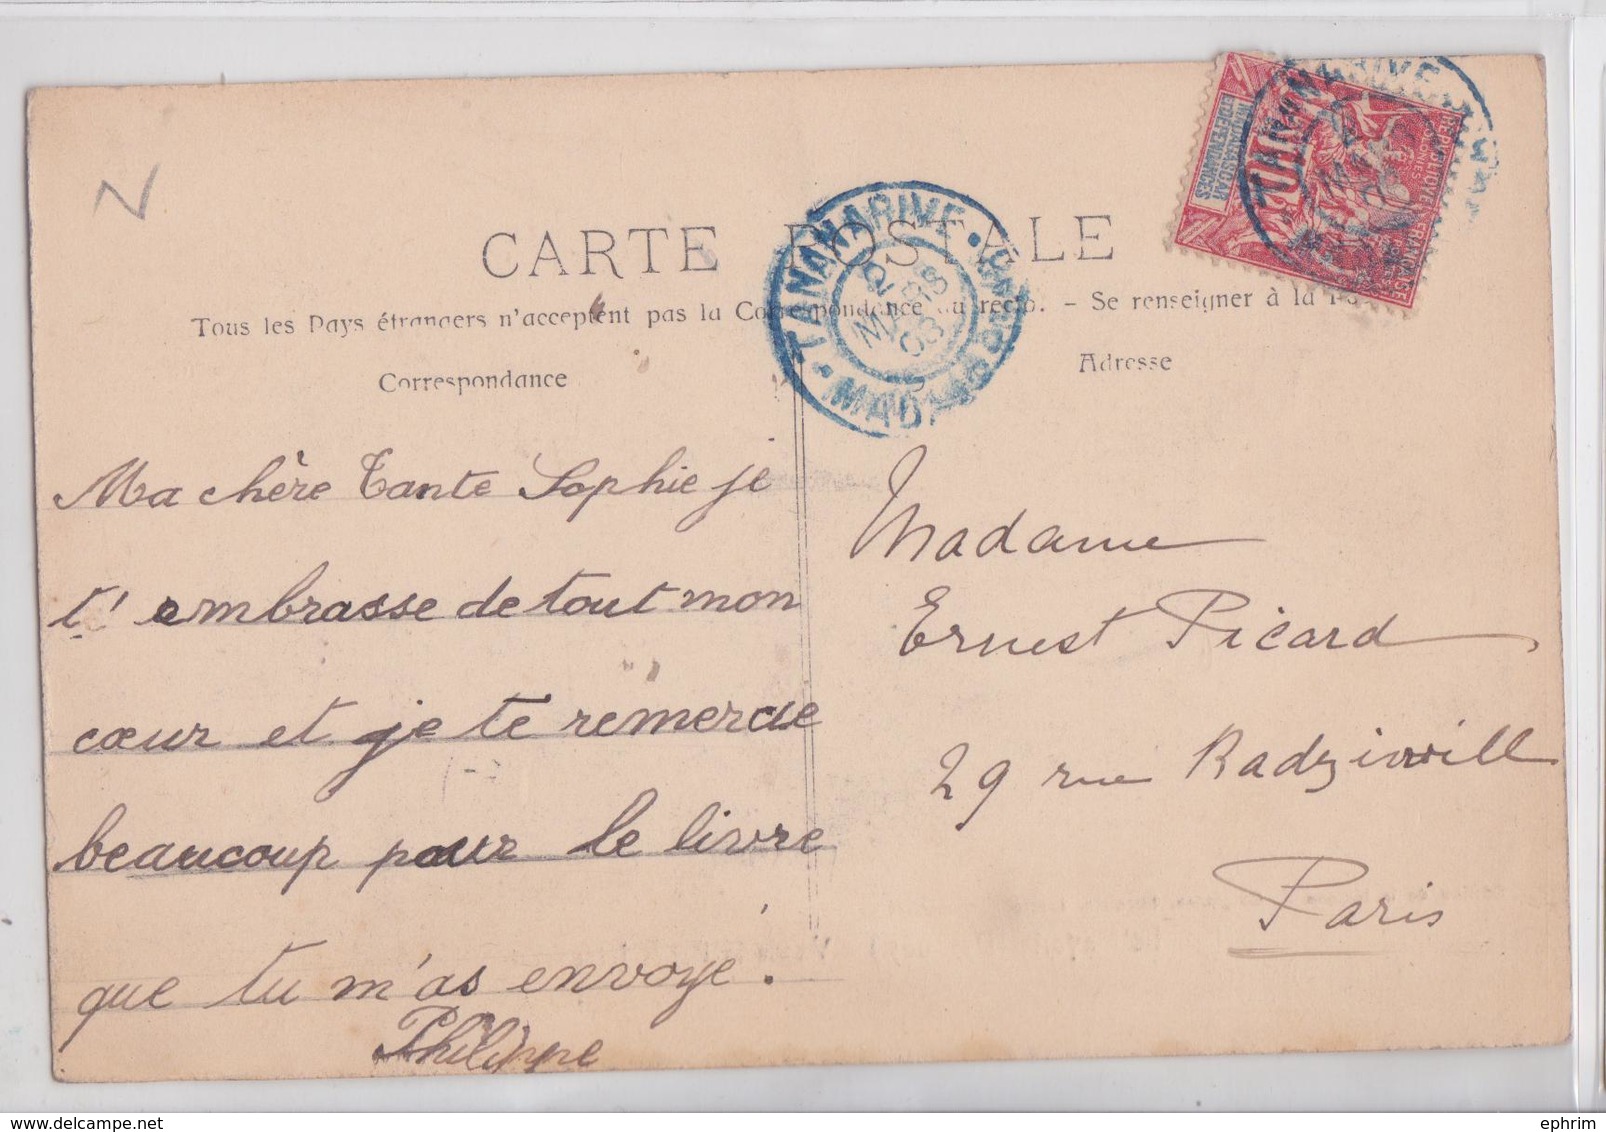 CARTE POSTALE
Tous les Pays étrangers n'acceptent pas la Correspondance au recto. - Se renseigner à la
Correspondance
Adresse
TANANARIVE
2 MARS 08
RÉPUBLIQUE FRANÇAISE
COLONIES
MADAGASCAR
ET DÉPENDANCES
10
TANANARIVE
Ma chère Tante Sophie je
t'embrasse de tout mon
cœur et je te remercie
beaucoup pour le livre
que tu m'as envoyé.
Philippe
Madame
Ernest Picard
29 rue Radziwill
Paris
ephrim